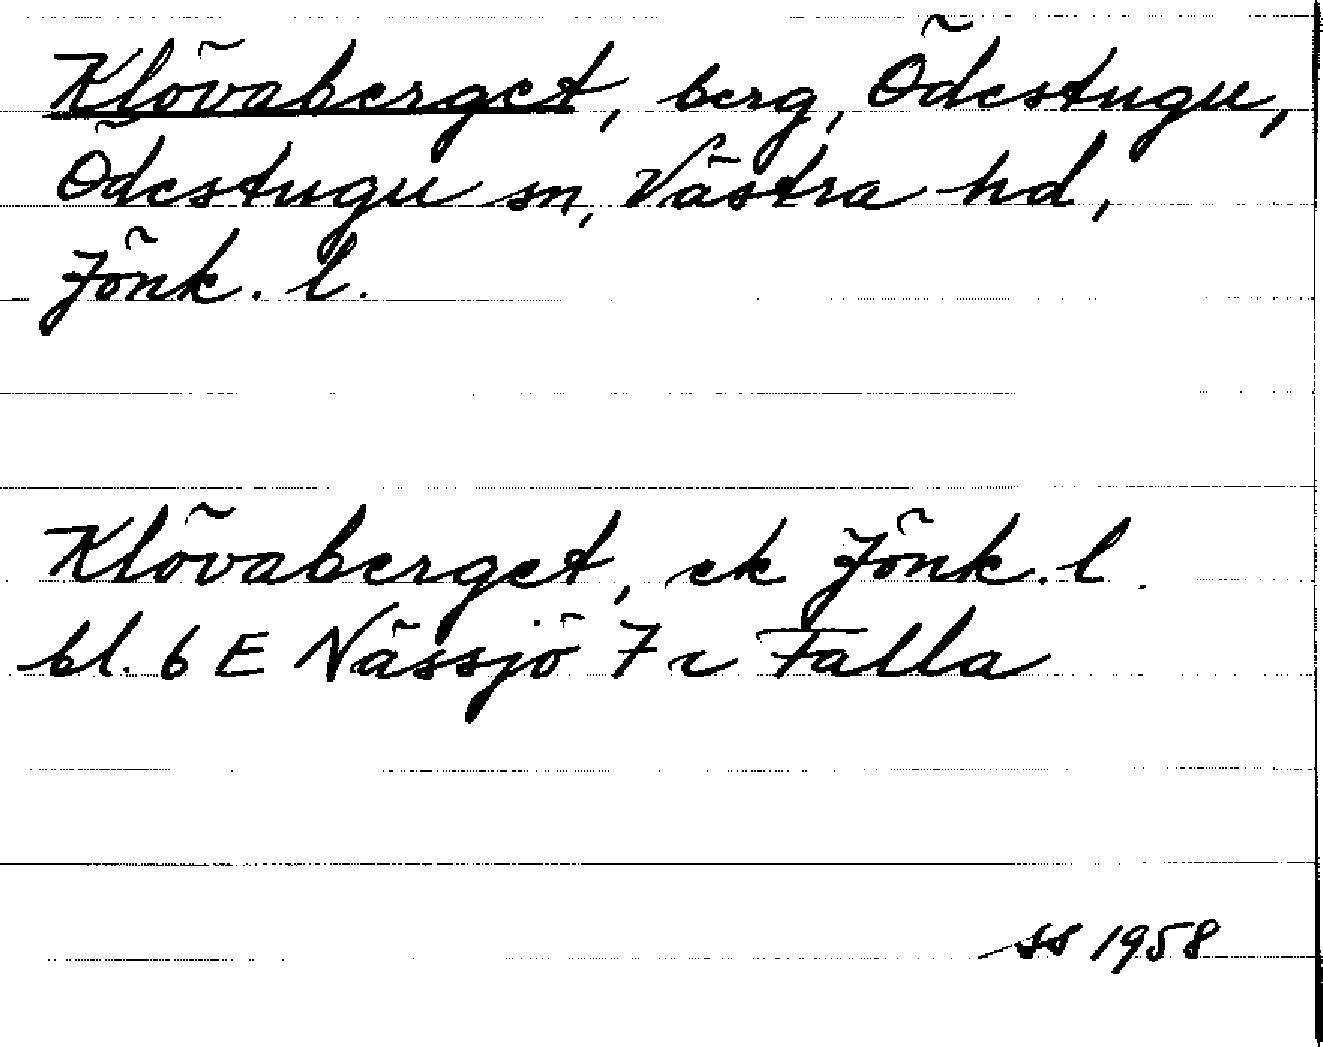 Klövaberget, berg, Ödestugu,
Ödestugu sn, Västra hd,
Jönk. l.
Klövaberget, ek Jönk. l.
bl. 6 E Nässjö 7 c Falla
ss 1958